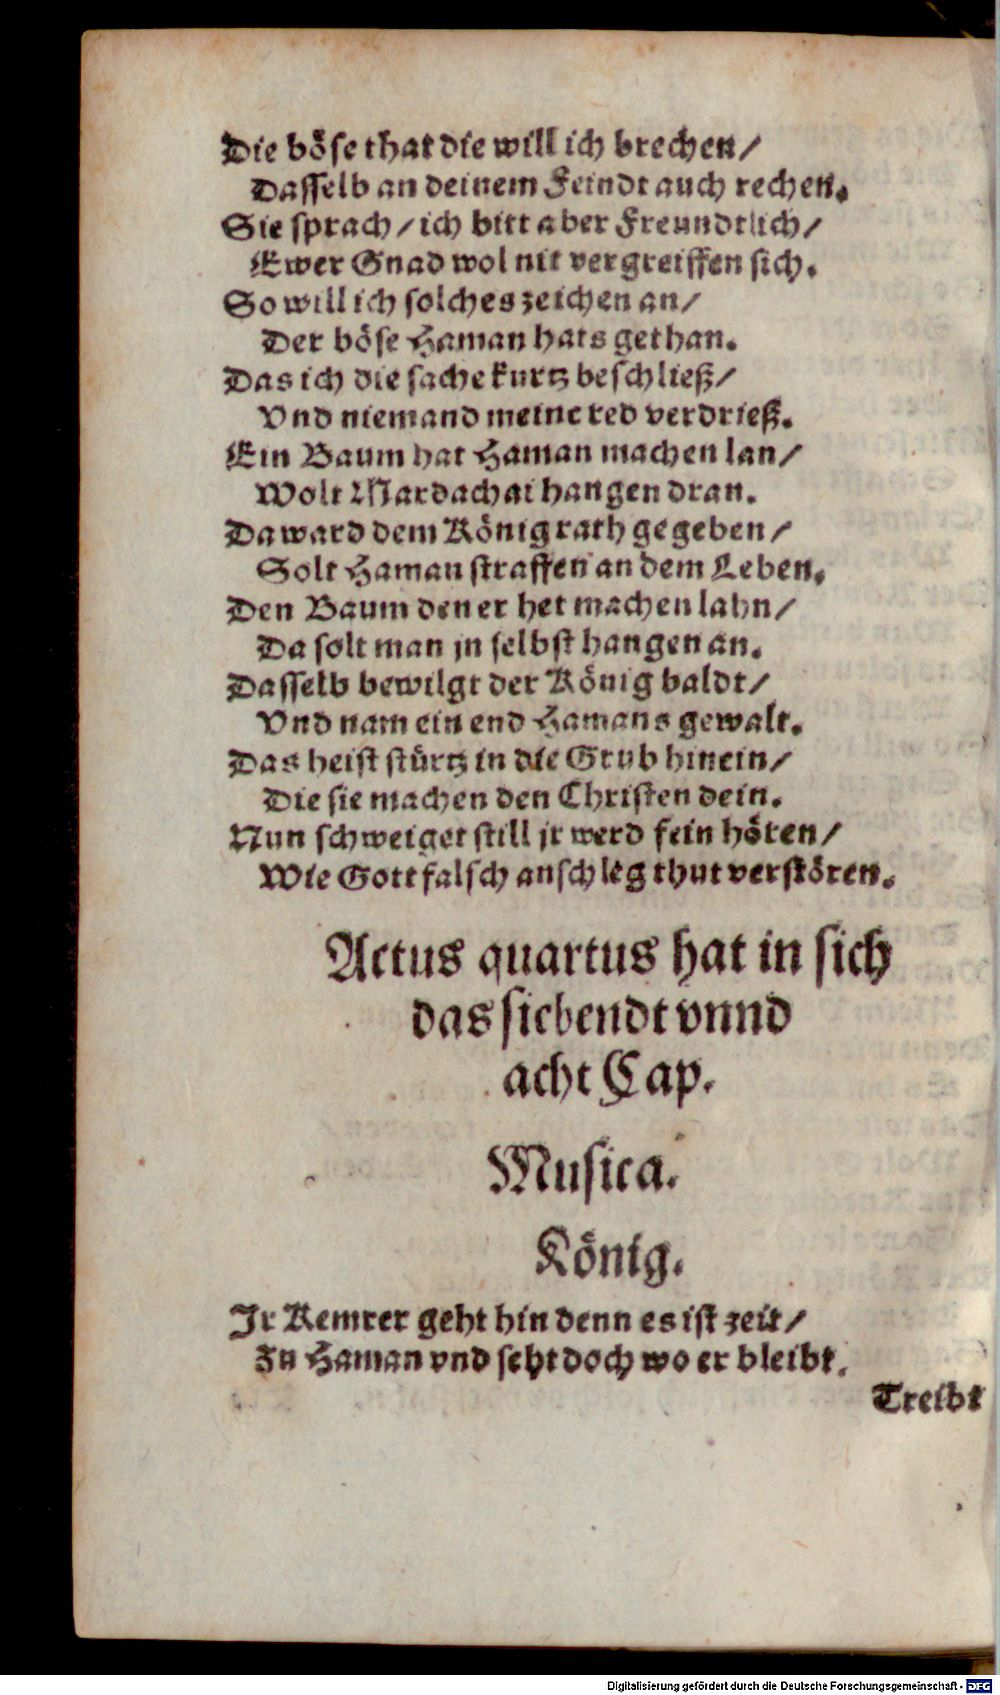 Die böse that die will ich brechen/
Dasselb an deinem Feindt auch rechen.
Sie sprach/ ich bitt aber Freundtlich/
Ewer Gnad wol nit vergreiffen sich.
So will ich solches zeichen an/
Der böse Haman hats gethan.
Das ich die sache kurtz beschließ/
Vnd niemand meine red verdrieß.
Ein Baum hat Haman machen lan/
Wolt Mardachai hangen dran.
Da ward dem König rath gegeben/
Solt Haman straffen an dem Leben.
Den Baum den er het machen lahn/
Da solt man jn selbst hangen an.
Dasselb bewilgt der König baldt/
Vnd nam ein end Hamans gewalt.
Das heist stürtz in die Grub hinein/
Die sie machen den Christen dein.
Nun schweiget still jr werd fein hören/
Wie Gott falsch anschleg thut verstören.
Actus quartus hat in sich
das siebendt vnnd
acht Cap.
Musica.
König.
Jr Kemrer geht hin denn es ist zeit/
Zu Haman vnd seht doch wo er bleibt.
Treibt
Digitalisierung gefördert durch die Deutsche Forschungsgemeinschaft - DFG